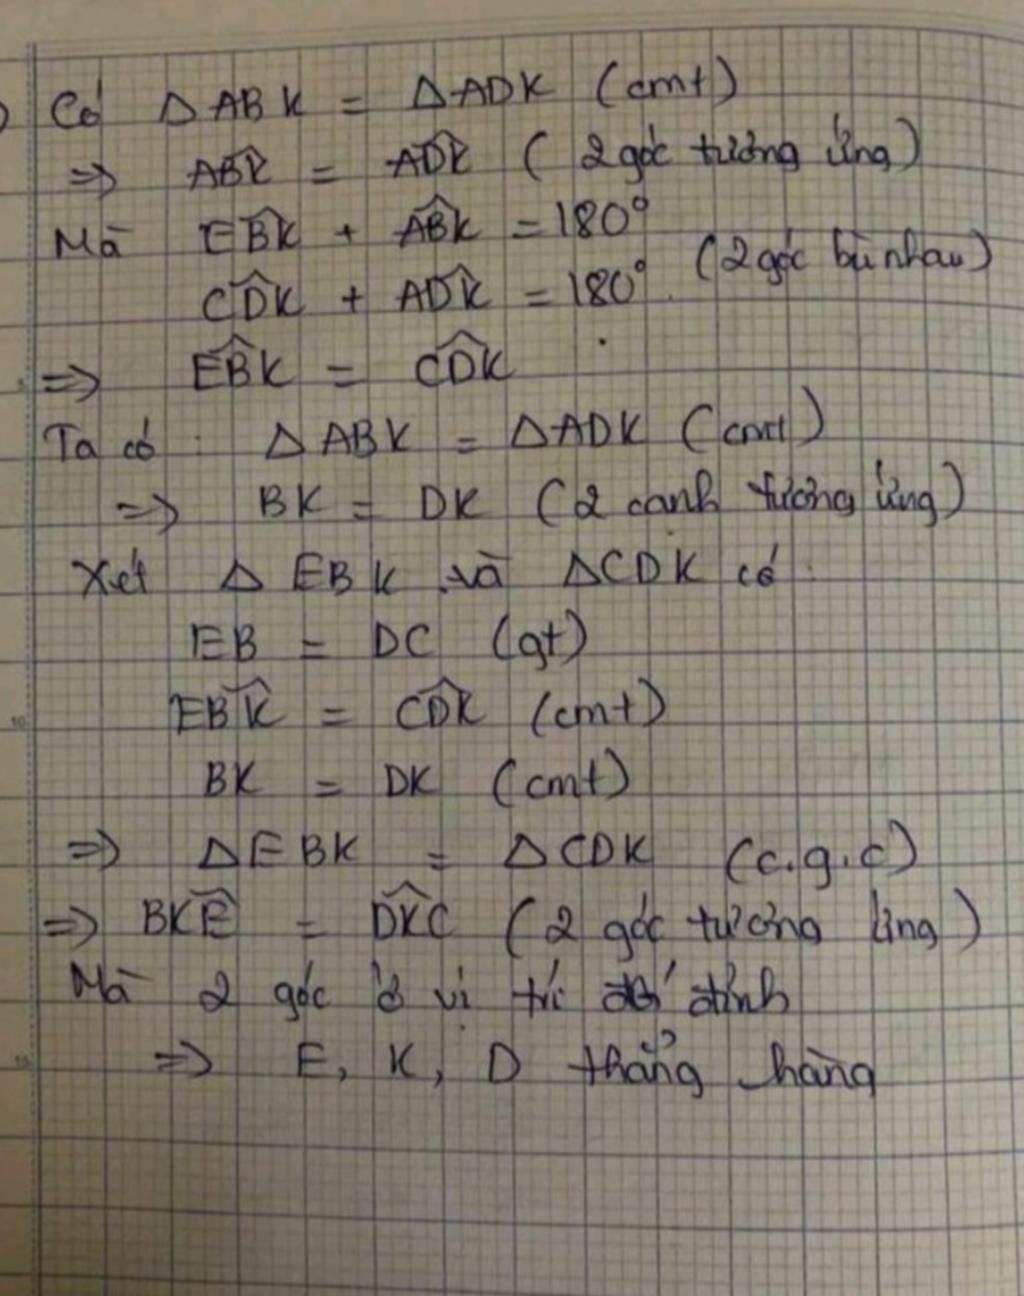 Có △ ABK = △ADK (cmt)
=> ABK̂ = ADK̂ (2 góc tương ứng)
Mà EBK̂ + ABK̂ = 180°
(2 góc bù nhau)
CDK̂ + ADK̂ = 180°.
=> EBK̂ = CDK̂
Ta có : △ ABK = △ADK (cmt)
=> BK = DK (2 cạnh tương ứng)
Xét △ EBK và △CDK có
EB = DC (gt)
EBK̂ = CDK̂ (cmt)
BK = DK (cmt)
=> △EBK = △CDK (c.g.c)
=> BKÊ = DKĈ (2 góc tương ứng)
Mà 2 góc ở vị trí đối đỉnh
=> E, K, D thẳng hàng